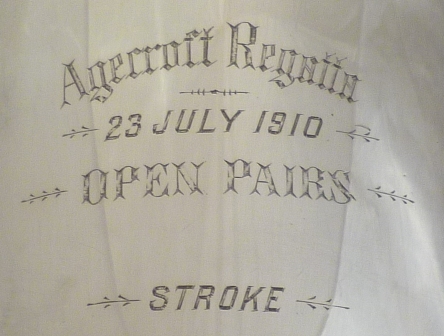 Agecroft Regatta
23 JULY 1910
OPEN PAIRS
STROKE